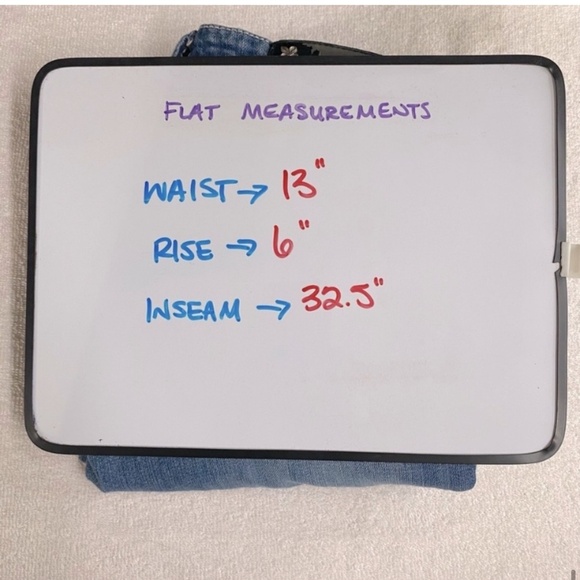 FLAT MEASUREMENTS
WAIST → 13"
RISE → 6"
INSEAM → 32.5"